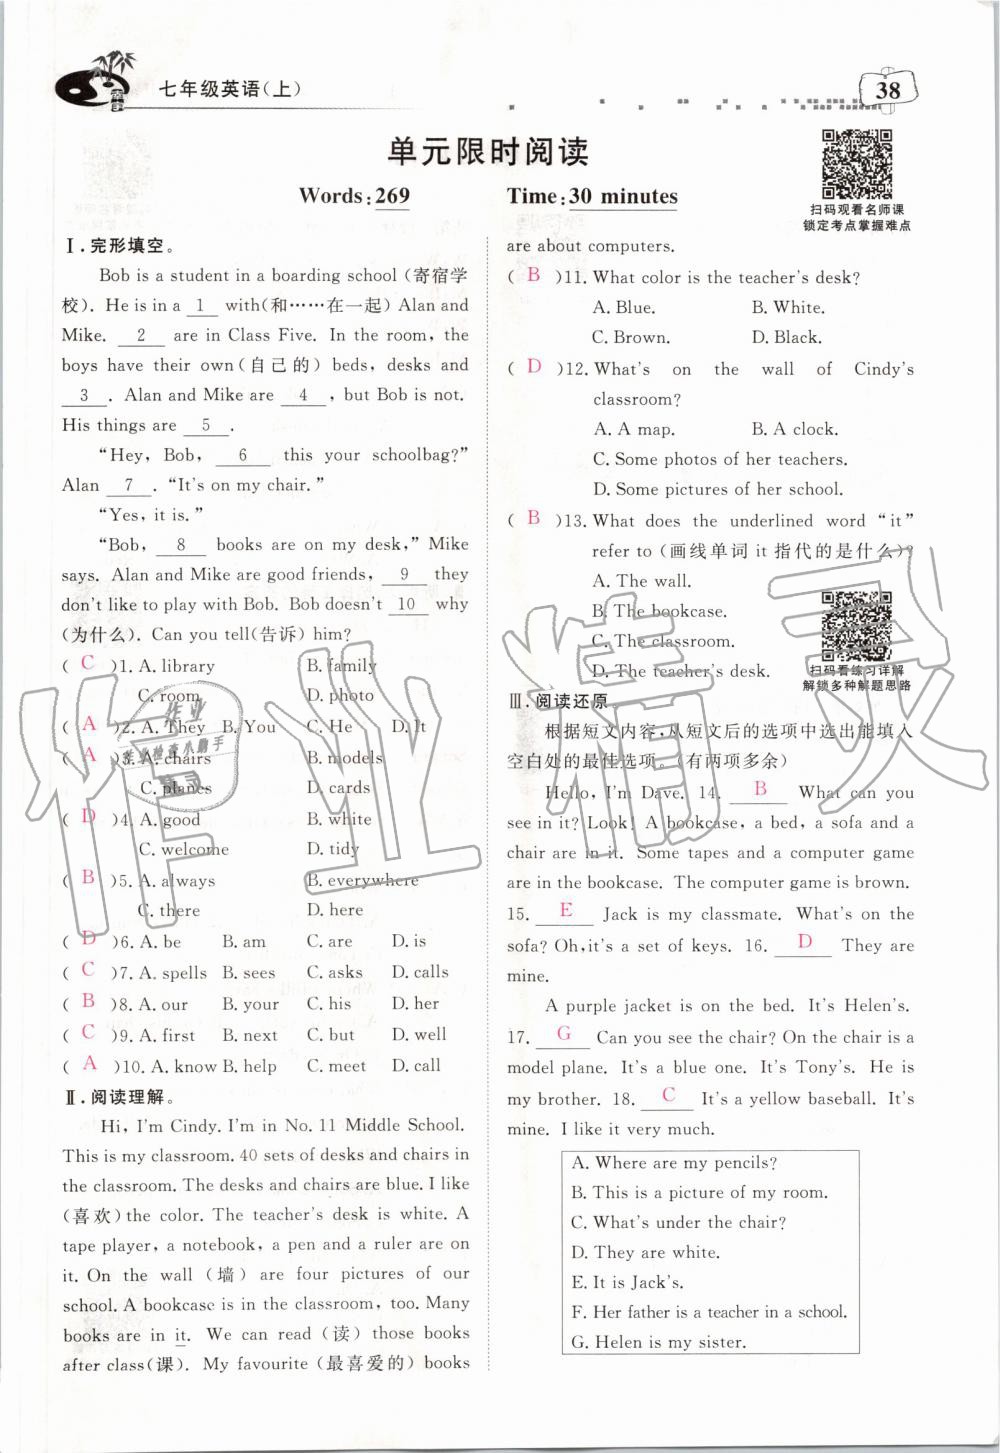 七年级英语(上)
38
单元限时阅读
Words:269 Time:30 minutes
扫码观看名师课
锁定考点掌握难点
Ⅰ.完形填空。
Bob is a student in a boarding school(寄宿学
校). He is in a 1 with(和……在一起) Alan and
Mike. 2 are in Class Five. In the room, the
boys have their own(自己的) beds, desks and
3 . Alan and Mike are 4 , but Bob is not.
His things are 5 .
“Hey, Bob, 6 this your schoolbag?”
Alan 7 . “It's on my chair.”
“Yes, it is.”
“Bob, 8 books are on my desk,” Mike
says. Alan and Mike are good friends, 9 they
don't like to play with Bob. Bob doesn't 10 why
(为什么). Can you tell(告诉) him?
( C )1. A. library B. family
C. room D. photo
( A )2. A. They B. You C. He D. It
( A )3. A. chairs B. models
C. planes D. cards
( D )4. A. good B. white
C. welcome D. tidy
( B )5. A. always B. everywhere
C. there D. here
( D )6. A. be B. am C. are D. is
( C )7. A. spells B. sees C. asks D. calls
( B )8. A. our B. your C. his D. her
( C )9. A. first B. next C. but D. well
( A )10. A. know B. help C. meet D. call
Ⅱ.阅读理解。
Hi, I'm Cindy. I'm in No. 11 Middle School.
This is my classroom. 40 sets of desks and chairs in
the classroom. The desks and chairs are blue. I like
(喜欢) the color. The teacher's desk is white. A
tape player, a notebook, a pen and a ruler are on
it. On the wall (墙) are four pictures of our
school. A bookcase is in the classroom, too. Many
books are in it. We can read (读) those books
after class(课). My favourite (最喜爱的) books
are about computers.
( B )11. What color is the teacher's desk?
A. Blue. B. White.
C. Brown. D. Black.
( D )12. What's on the wall of Cindy's
classroom?
A. A map. B. A clock.
C. Some photos of her teachers.
D. Some pictures of her school.
( B )13. What does the underlined word “it”
refer to (画线单词 it 指代的是什么)?
A. The wall.
B. The bookcase.
C. The classroom.
D. The teacher's desk.
扫码看练习详解
解锁多种解题思路
Ⅲ.阅读还原
根据短文内容,从短文后的选项中选出能填入
空白处的最佳选项。(有两项多余)
Hello, I'm Dave. 14. B What can you
see in it? Look! A bookcase, a bed, a sofa and a
chair are in it. Some tapes and a computer game
are in the bookcase. The computer game is brown.
15. E Jack is my classmate. What's on the
sofa? Oh, it's a set of keys. 16. D They are
mine.
A purple jacket is on the bed. It's Helen's.
17. G Can you see the chair? On the chair is a
model plane. It's a blue one. It's Tony's. He is
my brother. 18. C It's a yellow baseball. It's
mine. I like it very much.
A. Where are my pencils?
B. This is a picture of my room.
C. What's under the chair?
D. They are white.
E. It is Jack's.
F. Her father is a teacher in a school.
G. Helen is my sister.
作业精灵
作业
作业检查小助手
精灵